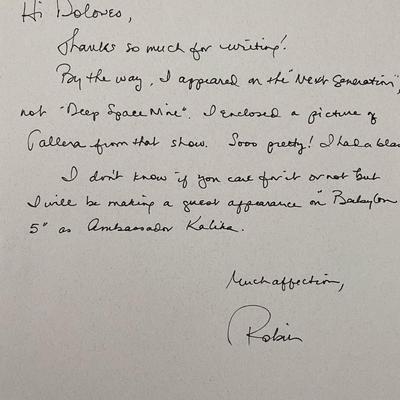 Hi Dolores,
Thanks so much for writing!
By the way, I appeared on the "Next Generation",
not "Deep Space Nine". I enclosed a picture of
Tallera from that show. Sooo pretty! I had a blas
I don't know if you care for it or not but
I will be making a guest appearance on "Babylon
5" as Ambassador Kalika.
Much affection,
Robin